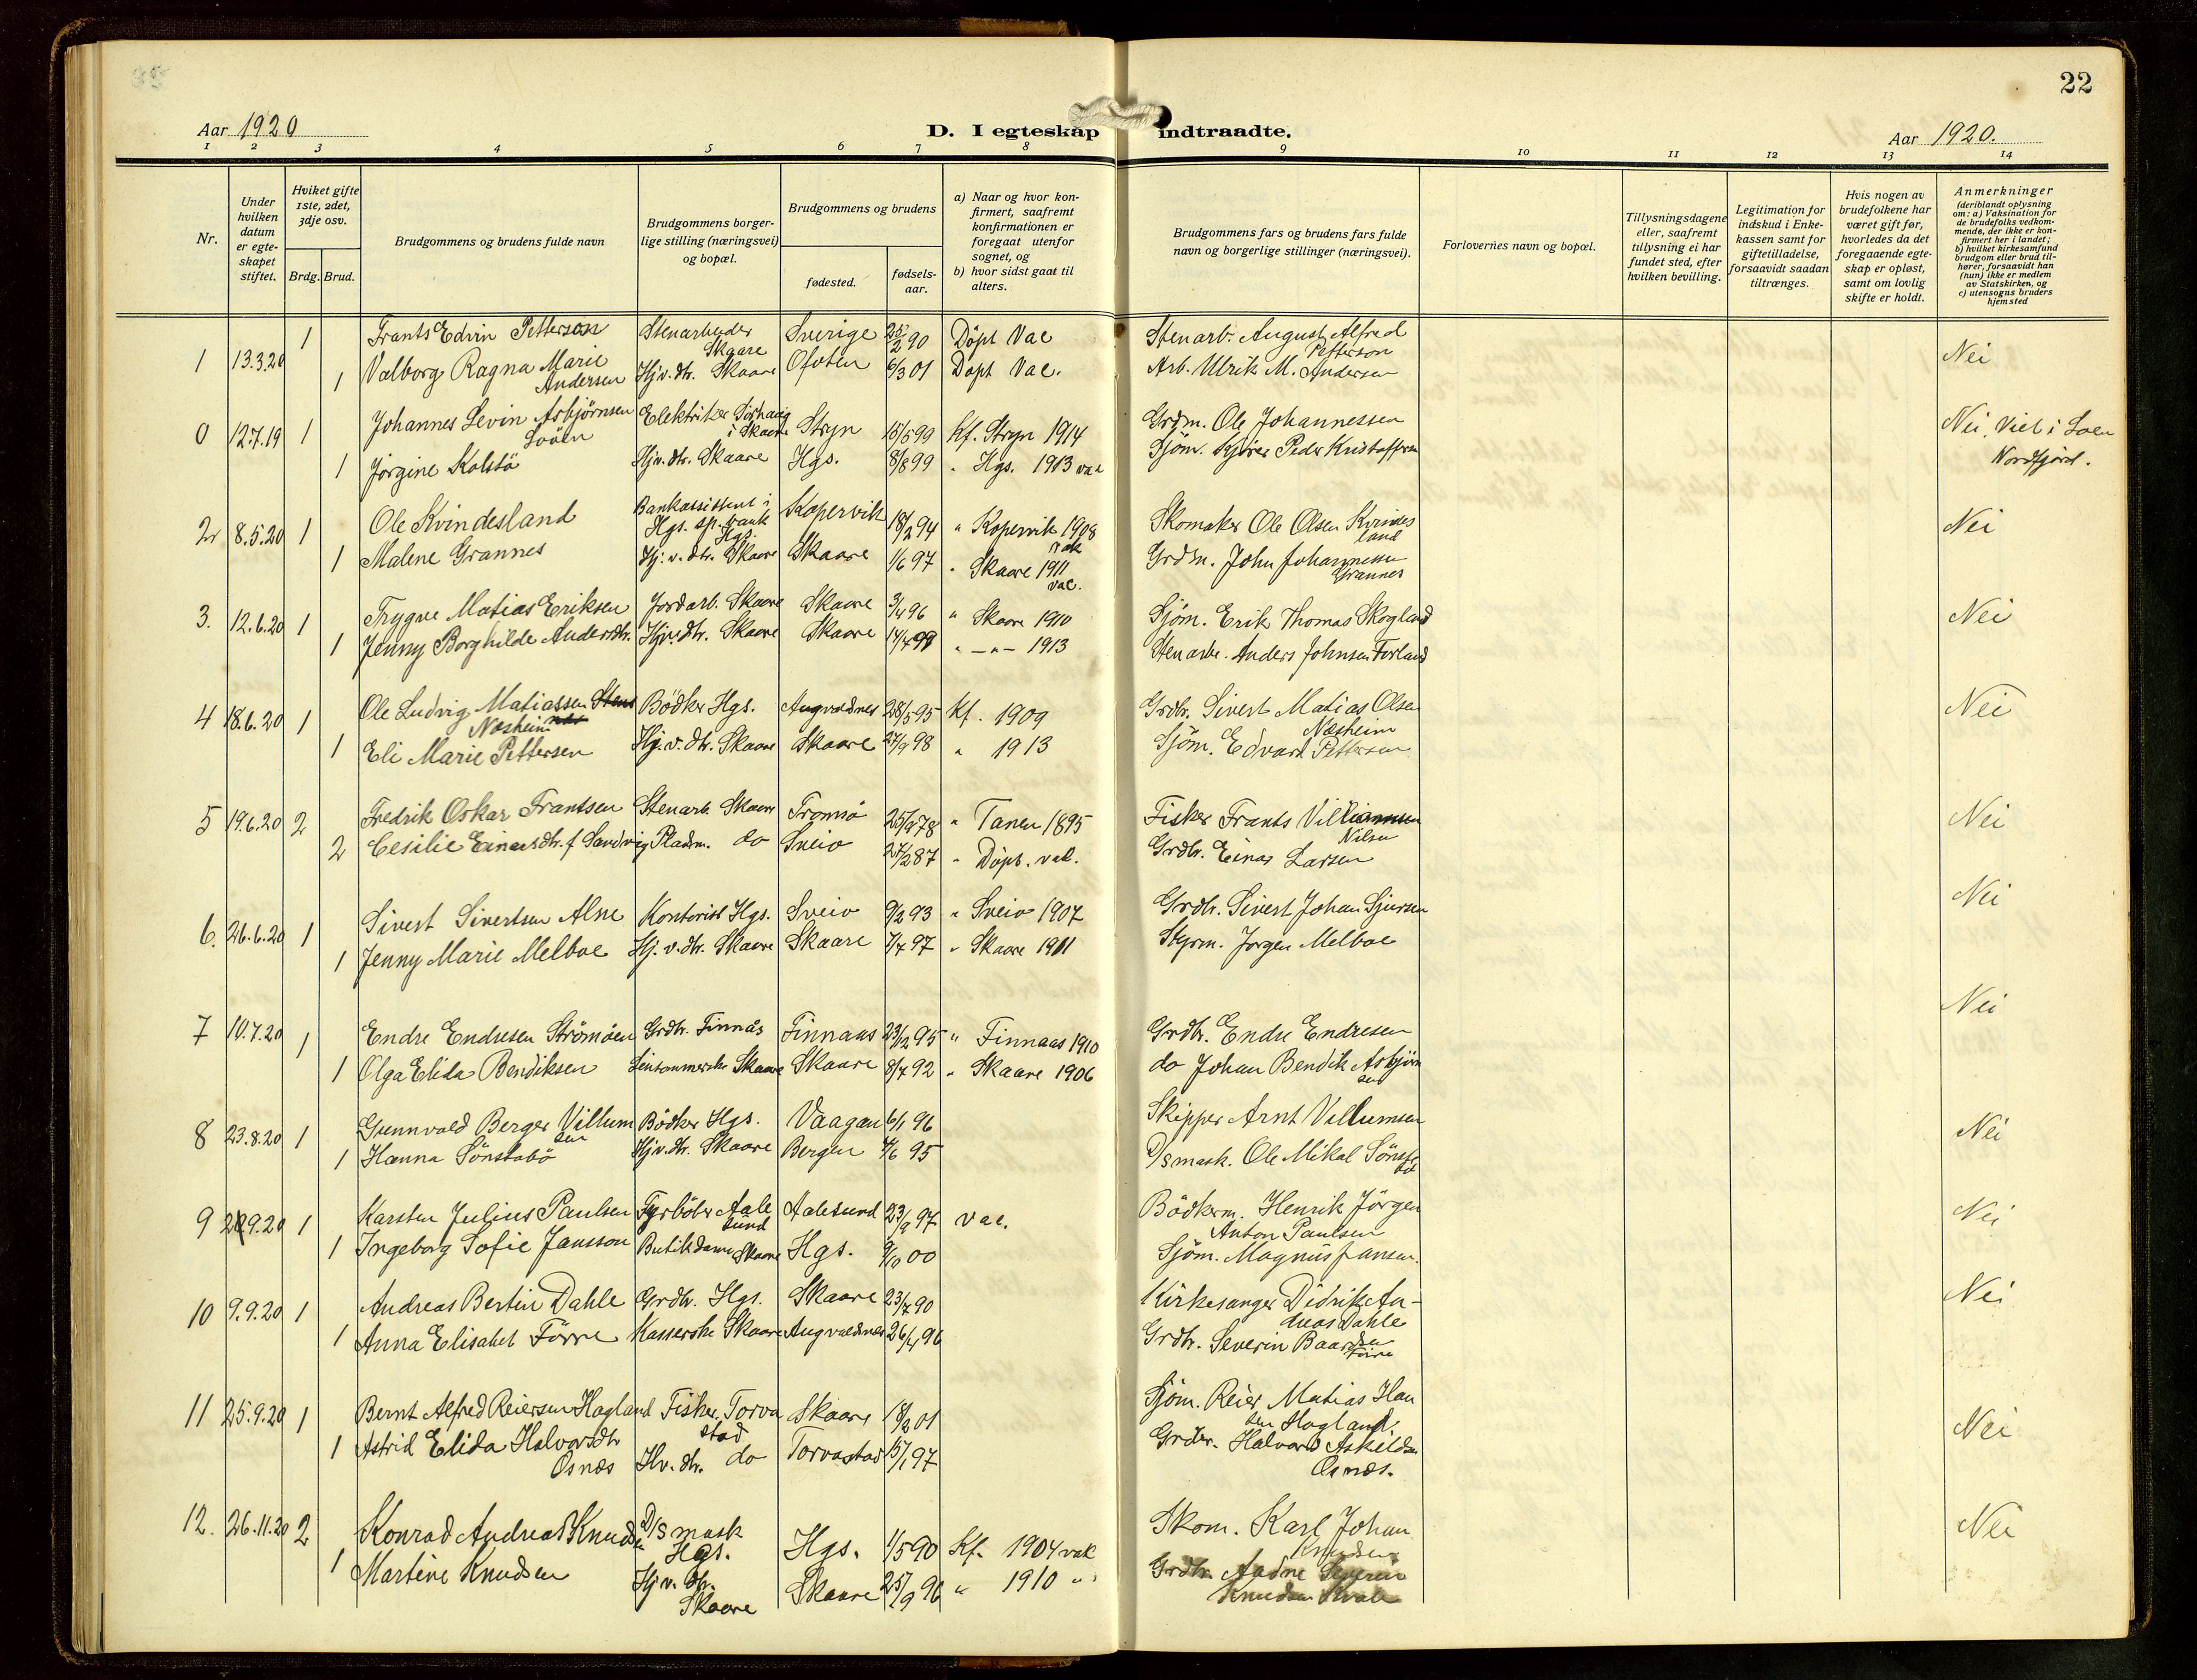 22
Aar 1920
D. I egteskap indtraadte.
Aar 1920.
1 2 3 4 5 6 7 8 9 10 11 12 13 14
Nr.
Under hvilken datum er egteskapet stiftet.
Hviket gifte 1ste, 2det, 3dje osv.
Brdg. Brud.
Brudgommens og brudens fulde navn
Brudgommens borgerlige stilling (næringsvei) og bopæl.
Brudgommens og brudens
fødested.
fødselsaar.
a) Naar og hvor konfirmert, saafremt konfirmationen er foregaat utenfor sognet, og
b) hvor sidst gaat til alters.
Brudgommens fars og brudens fars fulde navn og borgerlige stillinger (næringsvei).
Forlovernes navn og bopæl.
Tillysningsdagene eller, saafremt tillysning ei har fundet sted, efter hvilken bevilling.
Legitimation for indskud i Enkekassen samt for giftetilladelse, forsaavidt saadan tiltrænges.
Hvis nogen av brudefolkene har været gift før, hvorledes da det foregaaende egteskap er opløst, samt om lovlig skifte er holdt.
Anmerkninger (deriblandt oplysning om: a) Vaksination for de brudefolks vedkommende, der ikke er konfirmert her i landet; b) hvilket kirkesamfund brudgom eller brud tilhører, forsaavidt han (hun) ikke er medlem av Statskirken, og c) utensogns bruders hjemsted
1 13.3.20 1 Frants Edvin Petterson Stenarbeider Skaare Sverige 25/2 90 Döpt Vac Stenarb. August Alfred Petterson Nei
1 Valborg Ragna Marie Andersen Hjv. dtr. Skaare Ofoten 6/3 01 Döpt Vac. Arb. Ulrik M. Andersen
0 12.7.19 1 Johannes Levin Asbjørnsen Lööen Elektriker i Skaare Stryn 15/5 99 Kf. Stryn 1914 Grdm. Ole Johannessen Nei, Viet i Loen Nordfjord.
1 Jörgine Kolstö Hjv. dtr. Skaare Hgs. 8/8 99 " Hgs. 1913 vac Sjöm. Peder Kristoffersen
2 8.5.20 1 Ole Kvindesland Bankassistent i Hgs. sp. bank Hgs. Kopervik 18/2 94 " Kopervik 1908 vak Skomaker Ole Olsen Kvindesland Nei
1 Malene Grannes Hj. v. dtr. Skaare Skaare 1/6 97 " Skaare 1911 vac. Grdm. John Johannessen Grannes
3. 12.6.20 1 Trygve Matias Eriksen Jordarb. Skaare Skaare 3/4 96 " Skaare 1910 Sjöm. Erik Thomas Skogland Nei
1 Jenny Borghilde Andersdtr. Hjv. dtr. Skaare Skaare 14/4 99 " —"— 1913 Stenarb. Anders Johnsen Forland
4 18.6.20 1 Ole Ludvig Matiassen Næsheim Bödker Hgs. Augvaldnes 28/5 95 Kf. 1909 Grdbr. Sivert Matias Olsen Næsheim Nei
1 Eli Marie Pettersen Hj. v. dtr. Skaare Skaare 27/9 98 " 1913 Sjöm. Edvard Pettersen
5 19.6.20 2 Fredrik Oskar Frantsen Stenarb. Skaare Tromsö 25/9 78 " Tanen 1895 Fisker Frants Nilsen Nei
2 Cesilie Einarsdtr. f Sandvig Pladsm. do Sveio 27/2 87 " Döpt. vac. Grdbr. Einar Larsen
6. 26.6.20 1 Sivert Sivertsen Alne Kontorist Hgs. Sveio 9/2 93 " Sveio 1907 Grdbr. Sivert Johan Sjursen Nei
1 Jenny Marie Melboe Hj. v. dtr. Skaare Skaare 7/7 97 " Skaare 1911 Styrm. Jörgen Melboe
7 10.7.20 1 Endre Endresen Strömöen Grdbr. Finnås Finnaas 23/12 95 " Finnaas 1910 Grdbr. Endre Endresen Nei
1 Olga Elida Bendiksen Skaare Skaare 8/7 92 " Skaare 1906 do Johan Bendik Asbjörnsen
8 23.8.20 1 Gunnvald Berger Villumsen Bödker Hgs. Vaagan 6/1 96 Skipper Arnt Villumsen Nei
1 Hanna Sönstabö Hjv. dtr. Skaare Bergen 4/6 95 D/S mask. Ole Mikal Sönstabö
9 9.20 1 Karsten Julius Paulsen Fyrböter Aalesund Aalesund 23/9 97 Vac. Bödkerm. Henrik Jörgen Anton Paulsen Nei
1 Ingeborg Sofie Jansson Butikdame Skaare Hgs. 9/10 00 Sjöm. Magnus Jansen.
10 9.9.20 1 Andreas Bertin Dahle Grdbr. Hgs. Skaare 23/7 90 Kirkesanger Didrik Andreas Dahle Nei
1 Anna Elisabet Förre Kasserske Skaare Augvaldnes 26/4 96 Grdbr. Severin Baardsen Förre
11 25.9.20 1 Bernt Alfred Reiersen Hagland Fisker, Torvastad Skaare 18/2 01 Sjöm. Reier Matias Hansen Hagland. Nei
1 Astrid Elida Halvorsdtr Osnæs Hv. dtr. do Torvastad 15/1 97 Grdbr. Halvard Askildsen Osnæs.
12. 26.11.20 2 Konrad Andreas Knudsen D/S mask Hgs. Hgs. 1/5 90 Kf. 1904 vak Skom. Karl Johan Knudsen Nei
1 Martine Knudsen Hjv. dtr. Skaare Skaare 25/9 96 " 1910 " Grdbr. Aadne Severin Knudsen Kvale